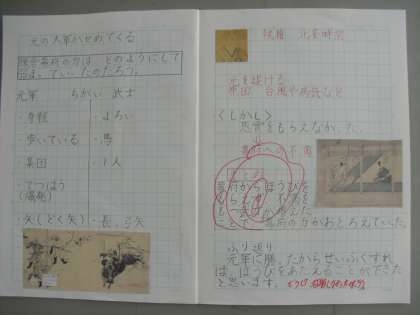 元の大軍がせめてくる
鎌倉幕府の力は どのようにして
おとろえていったのだろう。
元軍 ちがい 武士
・身軽 ・よろい
・歩いている ・馬
・集団 ・1人
・てつはう
(爆発)
・矢(どく矢) ・長い弓矢
執権 北条時宗
元を退ける
原因 台風や病気など
〈しかし〉
恩賞をもらえなかった。
幕府への不満
まとめ
幕府からほうびを
もらえず 不満を
もつ
幕府の力がおとろえていった。
ふり返り
元軍に勝ったからせいふくすれ
ば、ほうびをあたえることができた
と思います。